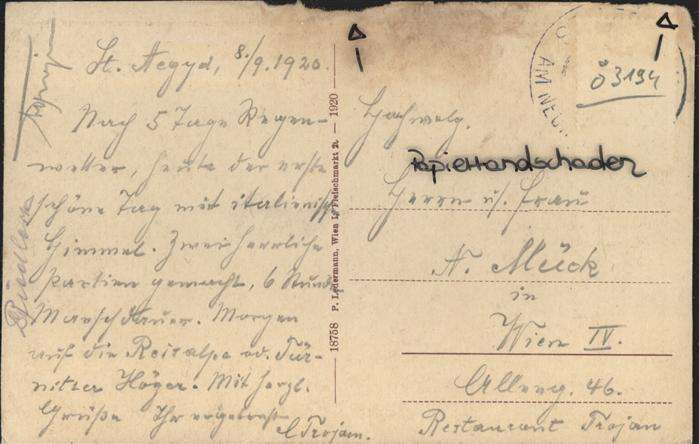 St. Aegyd, 8./9. 1920.
Nach 5 Tage Regen-
wetter, heute der erste
schöne Tag mit italienisch
Himmel. Zwei herrliche
Partien gemacht, 6 Stund
Marschdauer. Morgen
auf die Reisalpe od. Tür-
nitzer Höger. Mit herzl.
Grüße Ihr ergebenst
Trojan.
18758 P. Ledermann, Wien I., Fleischmarkt 2. — 1920
AM NEU
Ö 3194
Papierrandschaden
Herrn u. Frau
A. Mück
in
Wien IV.
Alleeg. 46.
Restaurant Trojan